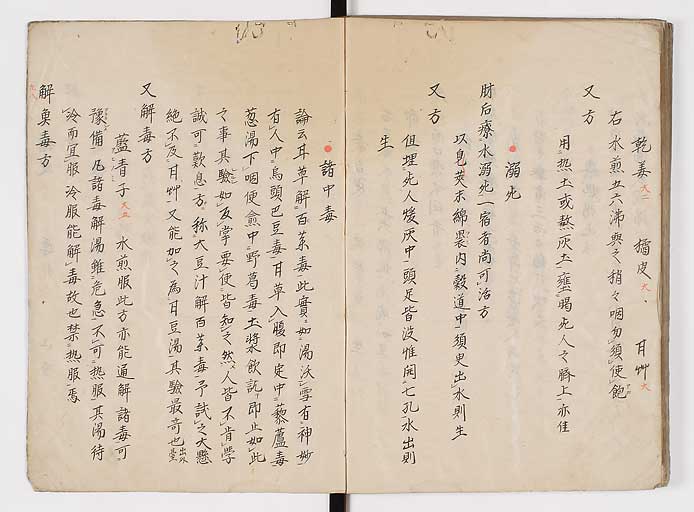 乾姜 大二 橘皮 大一 甘艸 大
右水煎五六沸與之稍々咽勿須使飽
又方
用热土或熬灰土壅暍死人之臍上亦佳
溺死
肘后療水溺死一宿者尚可活方
以皂莢末綿裹内穀道中須臾出水則生
又方
但埋死人煖灰中頭足皆没惟開七孔水出則
生
諸中毒
論云甘草解百藥毒此實如湯沃雪有神妙
有人中烏頭巴豆毒甘草入腹即定中藜蘆毒
葱湯下咽便愈中野葛毒土漿飲訖即止如此
之事其驗如反掌要使皆知之然人皆不肯學
誠可歎息方称大豆汁解百藥毒予試之大懸
絶不及甘艸又能加之為甘豆湯其驗最奇也
又解毒方
藍青子 水煎服此方亦能通解諸毒可
豫備凡諸毒解湯雖危急不可热服其湯待
冷而宜服冷服能解毒故也禁热服焉
解臭毒方